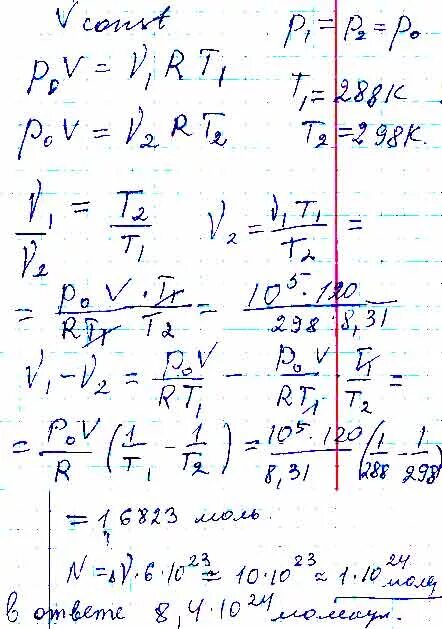 V const p₁ = p₂ = p₀
p₀V = ν₁ R T₁ T₁ = 288 К
p₀V = ν₂ R T₂ T₂ = 298 К.
ν₁/ν₂ = T₂/T₁ ν₂ = ν₁T₁/T₂ =
= p₀ V · T₁ / RT₁ T₂ = 10⁵ · 120 / 298 · 8,31
ν₁ - ν₂ = p₀V/RT₁ - p₀V/RT₁ · T₁/T₂ =
= p₀V/R (1/T₁ - 1/T₂) = 10⁵ · 120/8,31 (1/288 - 1/298)
= 1,6823 моль.
N = Δν · 6 · 10²³ ≈ 10 · 10²³ ≈ 1 · 10²⁴ молек
в ответе 8,4 · 10²⁴ молекул.